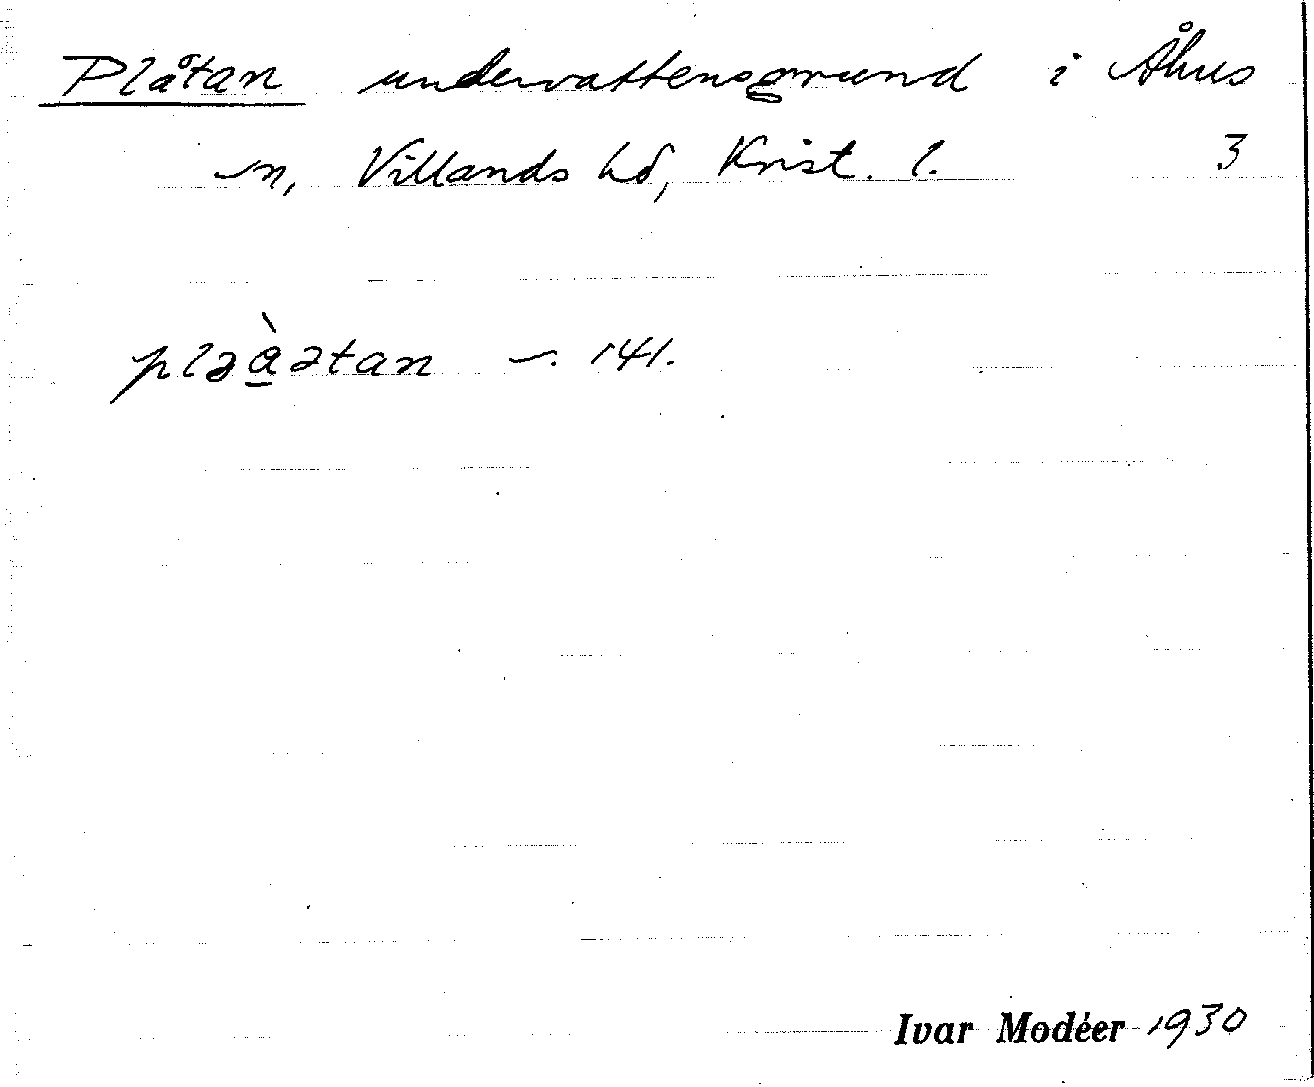 Plåtan undervattensgrund i Åhus
sn, Villands hd, Krist. l. 3
pləà̱ətan —. 141.
Ivar Modéer 1930